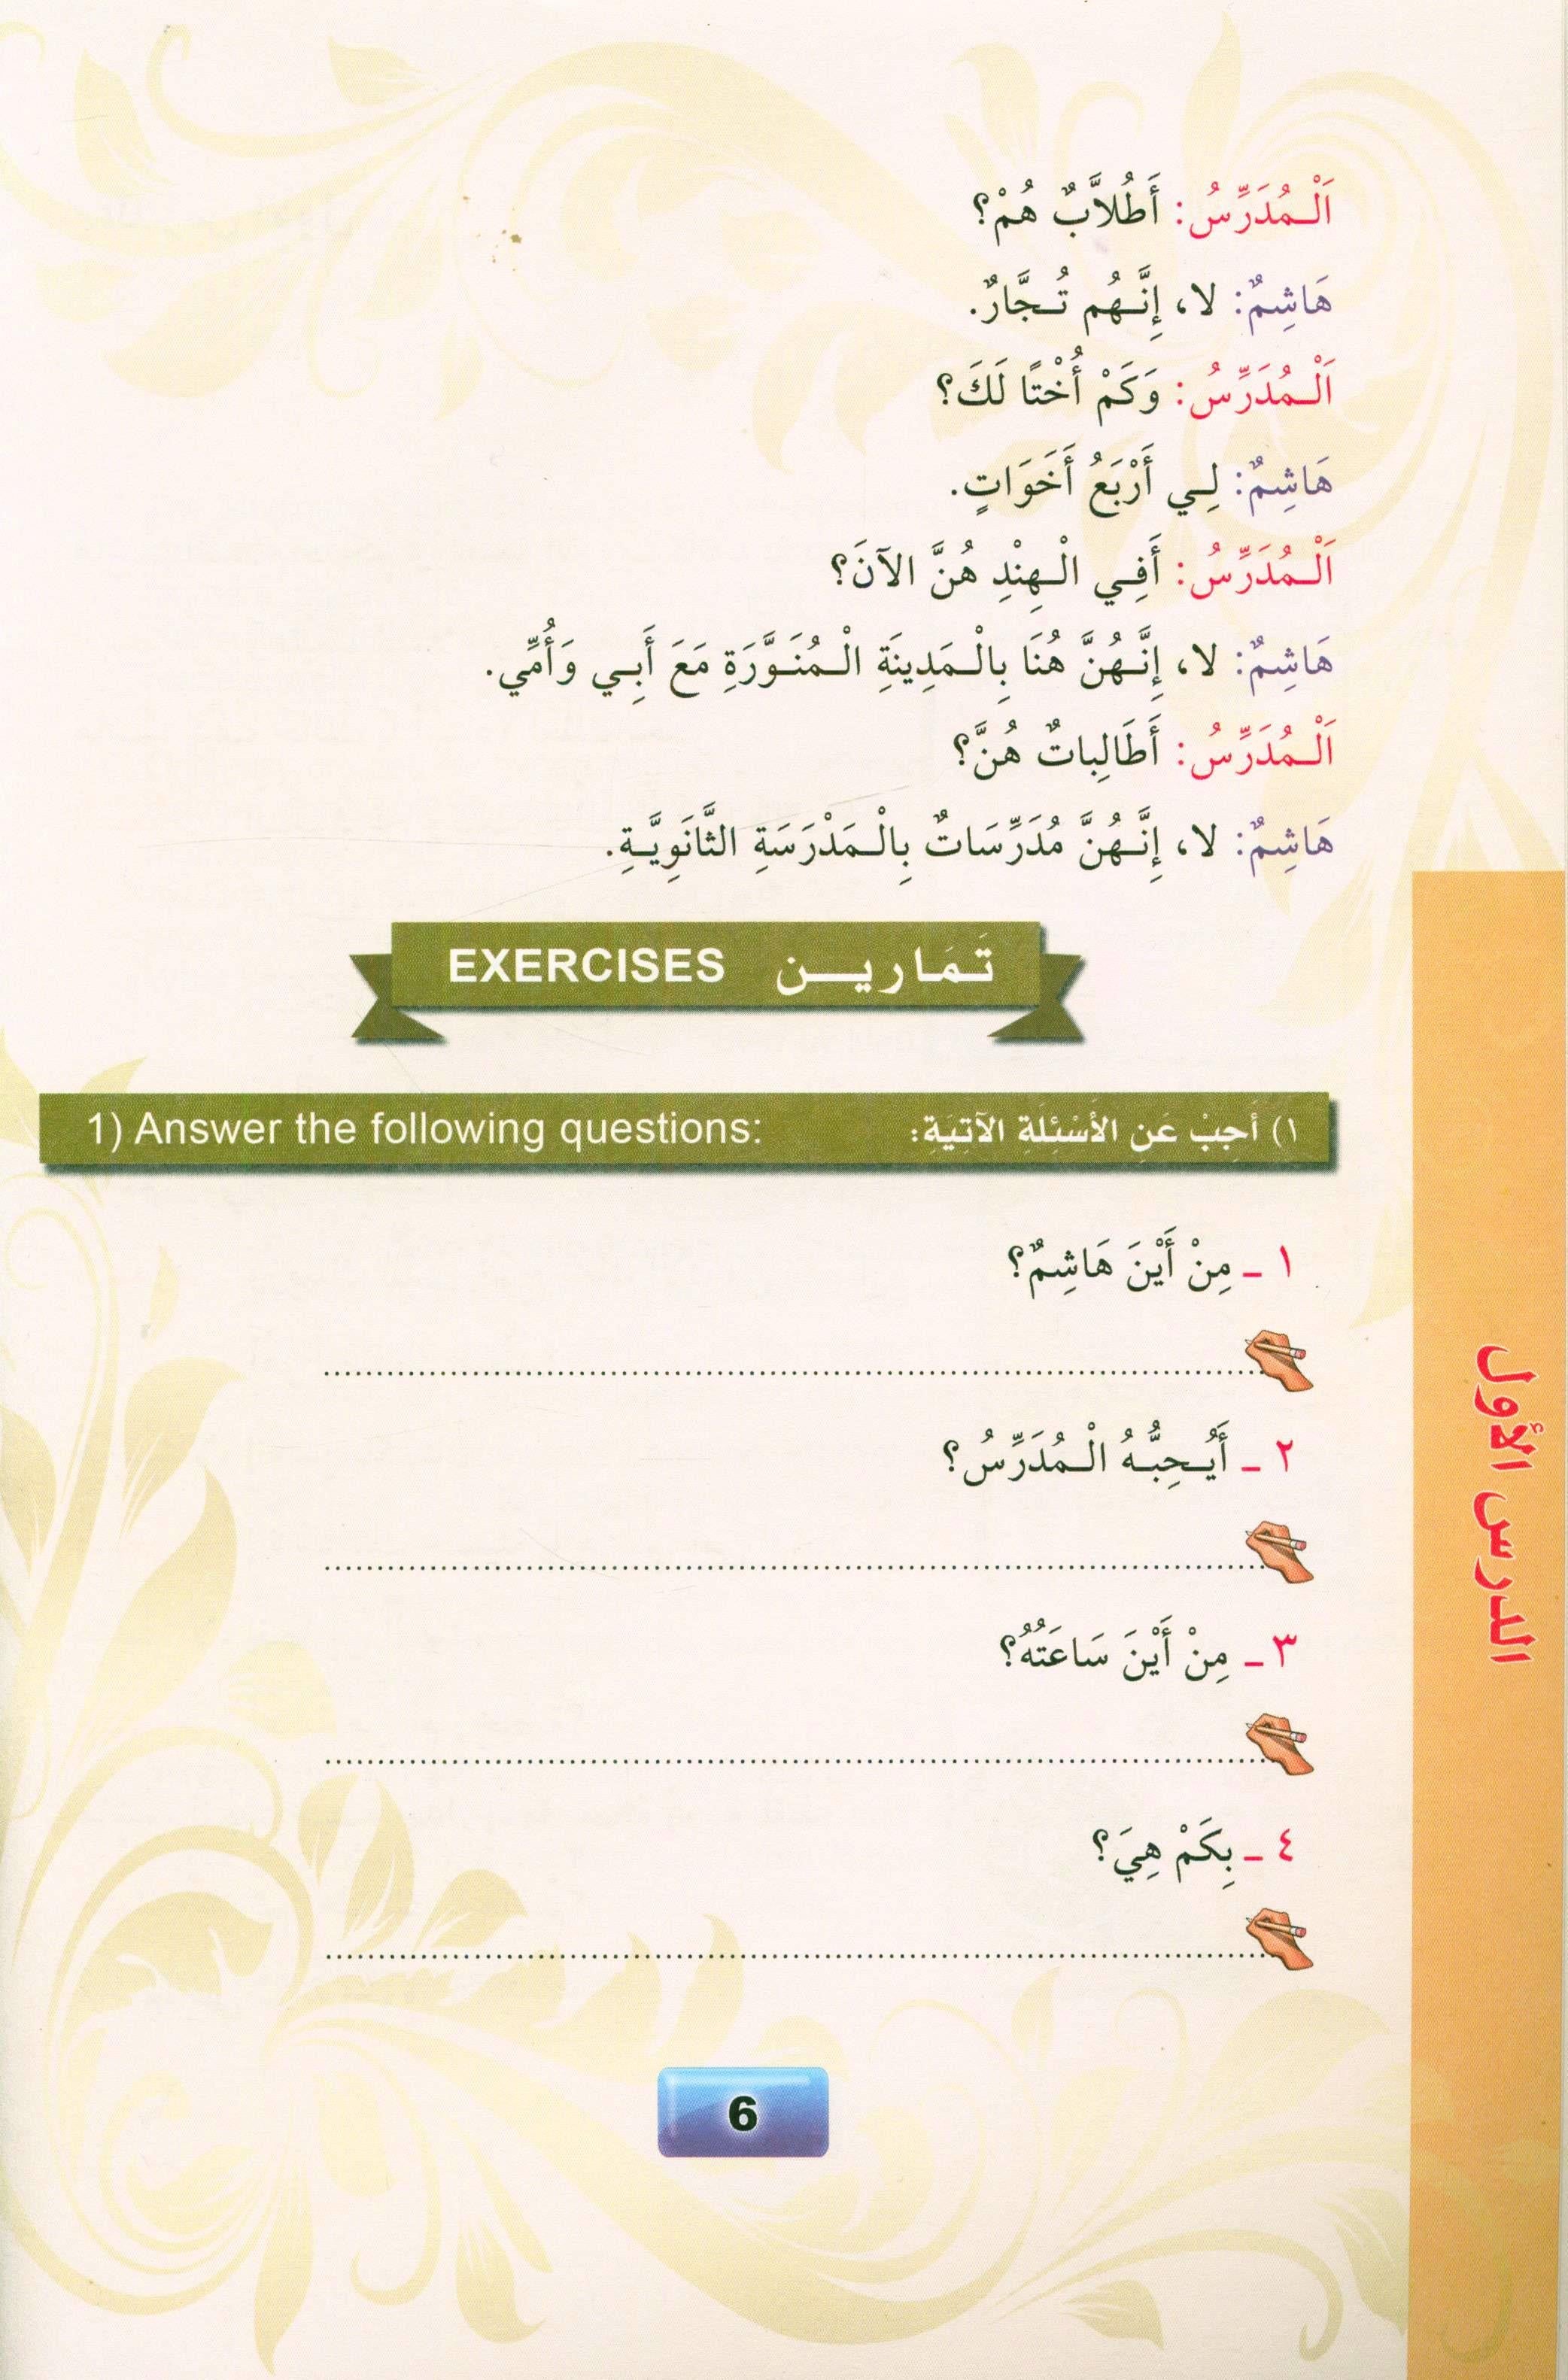 اَلْـمُدَرِّسُ: أَطُلاَّبٌ هُمْ؟
هَاشِمٌ: لا، إِنَّـهُم تُـجَّارٌ.
اَلْـمُدَرِّسُ: وَكَمْ أُخْتًا لَكَ؟
هَاشِمٌ: لِـي أَرْبَعُ أَخَوَاتٍ.
اَلْـمُدَرِّسُ: أَفِـي الْـهِنْدِ هُنَّ الآنَ؟
هَاشِمٌ: لا، إِنَّـهُنَّ هُنَا بِالْـمَدِينَةِ الْـمُنَـوَّرَةِ مَعَ أَبِـي وَأُمِّي.
اَلْـمُدَرِّسُ: أَطَالِباتٌ هُنَّ؟
هَاشِمٌ: لا، إِنَّـهُنَّ مُدَرِّسَاتٌ بِالْـمَدْرَسَةِ الثَّانَوِيَّـةِ.
تَـمَـارِيـــن EXERCISES
١) أَجِبْ عَنِ الأَسْئِلَةِ الآتِيَةِ: 1) Answer the following questions:
١ ـ مِنْ أَيْنَ هَاشِمٌ؟
٢ ـ أَيُـحِبُّـهُ الْـمُدَرِّسُ؟
٣ ـ مِنْ أَيْنَ سَاعَتُهُ؟
٤ ـ بِكَمْ هِيَ؟
الدرس الأول
6